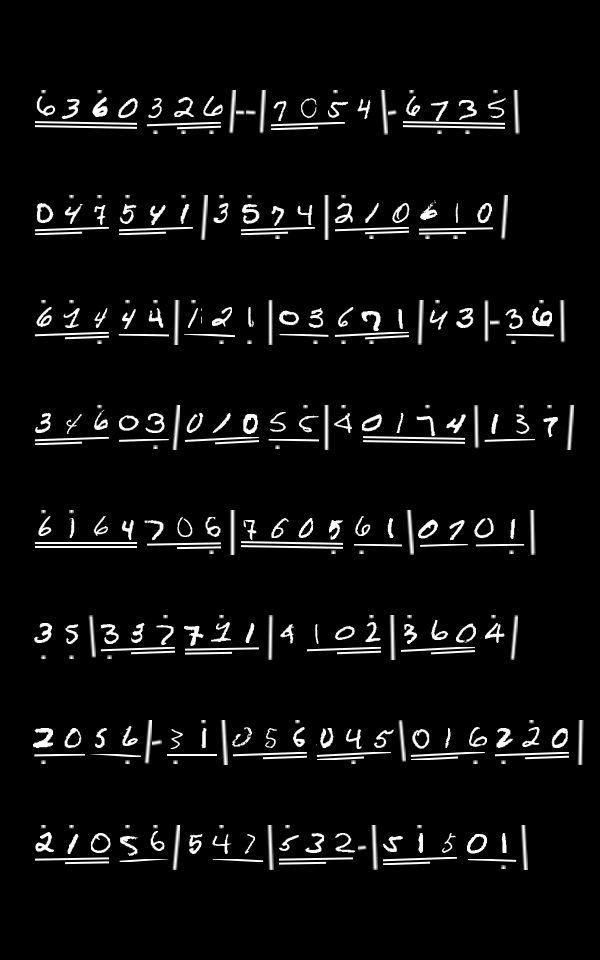 6360326|--|7054|-6735|
047541|3574|210610|
61444|1121|03671|43|-36|
34603|01055|40174|137|
6164706|760561|0701|
35|337711|4102|3604|
2056|-31|056045|016220|
21056|547|532-|51501|